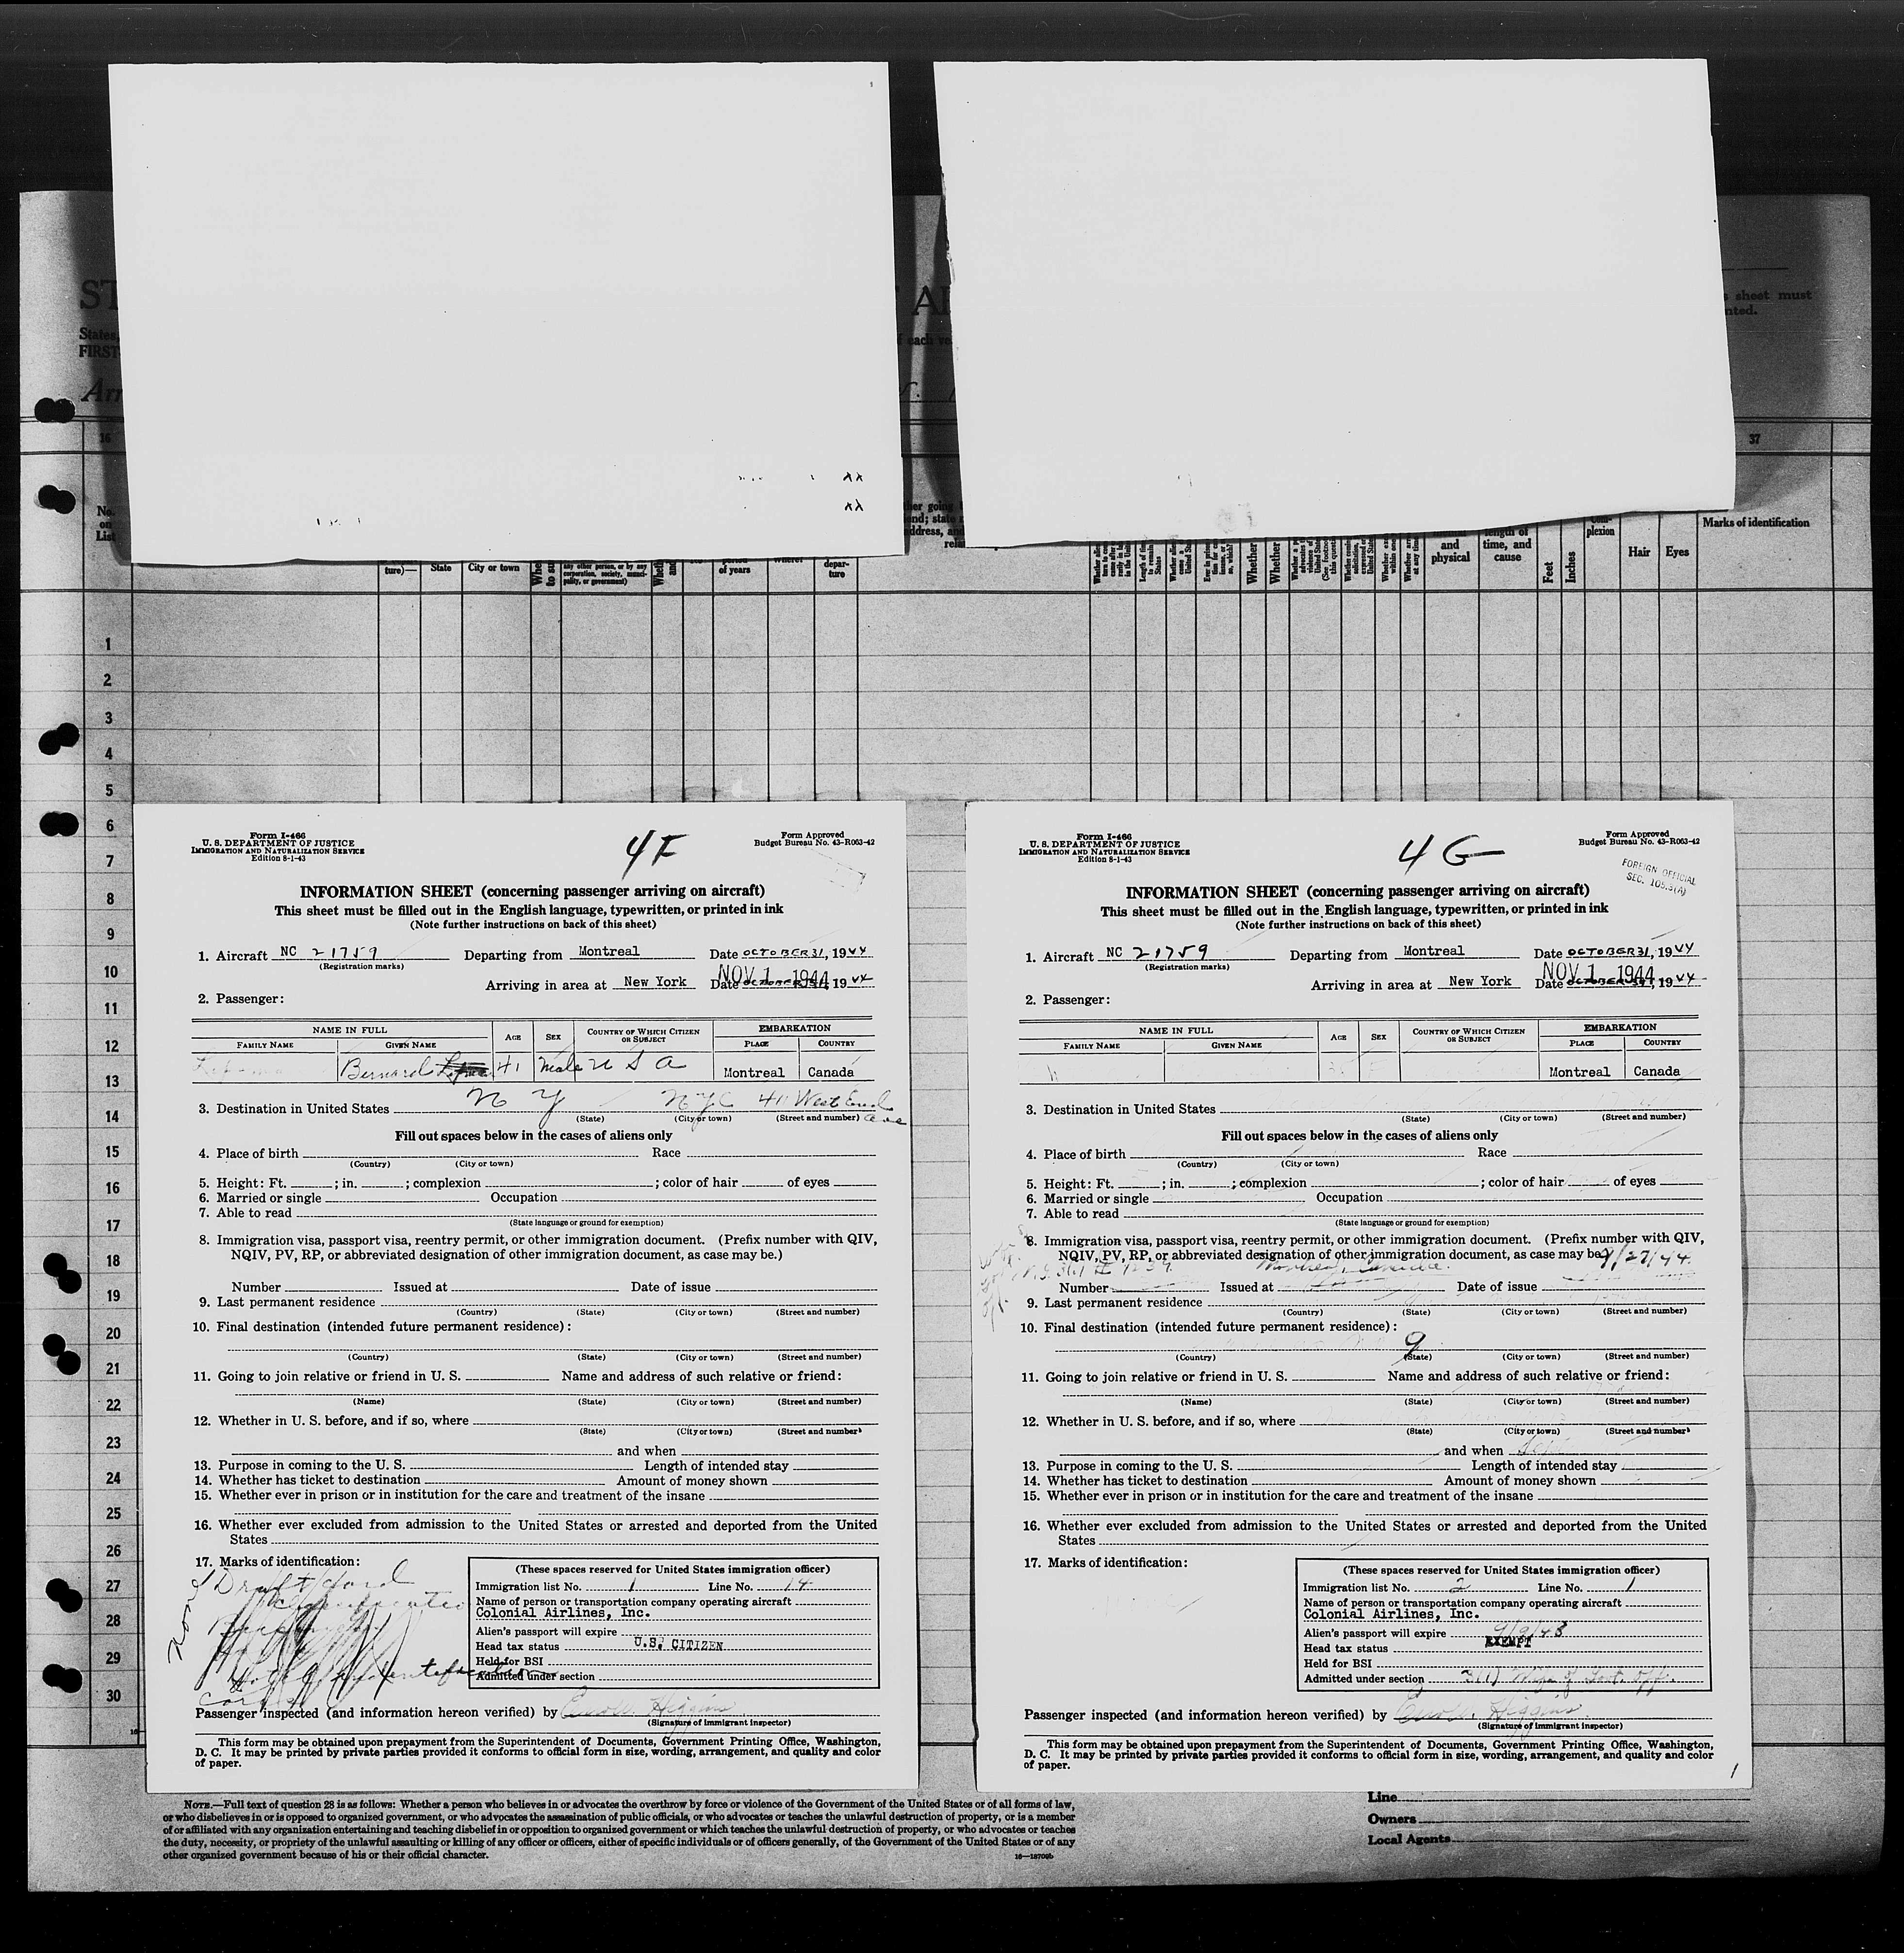 ST
States,
FIRST
Arr
AL
of each ve
s sheet must
nted.
16
37
No.
on
List
ture)—
State
City or town
any other person, or by any
corporation, society, munici-
pality, or government)
of years
depar-
ture
and
physical
length of
time, and
cause
Feet
Inches
plexion
Hair
Eyes
Marks of identification
1
2
3
4
5
6
7
8
9
10
11
12
13
14
15
16
17
18
19
20
21
22
23
24
25
26
27
28
29
30
Form I-466
U. S. DEPARTMENT OF JUSTICE
IMMIGRATION AND NATURALIZATION SERVICE
Edition 8-1-43
4F
Form Approved
Budget Bureau No. 43-R063-42
INFORMATION SHEET (concerning passenger arriving on aircraft)
This sheet must be filled out in the English language, typewritten, or printed in ink
(Note further instructions on back of this sheet)
1. Aircraft NC 21759 Departing from Montreal Date OCTOBER 31, 1944
(Registration marks)
Arriving in area at New York Date NOV 1 1944, 1944
2. Passenger:
NAME IN FULL AGE SEX COUNTRY OF WHICH CITIZEN OR SUBJECT EMBARKATION
FAMILY NAME GIVEN NAME PLACE COUNTRY
Bernard 41 Male U S A Montreal Canada
3. Destination in United States N Y NYC 411 West End Ave
(State) (City or town) (Street and number)
Fill out spaces below in the cases of aliens only
4. Place of birth Race
(Country) (City or town)
5. Height: Ft. ; in. ; complexion ; color of hair of eyes
6. Married or single Occupation
7. Able to read
(State language or ground for exemption)
8. Immigration visa, passport visa, reentry permit, or other immigration document. (Prefix number with QIV,
NQIV, PV, RP, or abbreviated designation of other immigration document, as case may be.)
Number Issued at Date of issue
9. Last permanent residence
(Country) (State) (City or town) (Street and number)
10. Final destination (intended future permanent residence):
(Country) (State) (City or town) (Street and number)
11. Going to join relative or friend in U. S. Name and address of such relative or friend:
(Name) (State) (City or town) (Street and number)
12. Whether in U. S. before, and if so, where
(State) (City or town) (Street and number)
and when
13. Purpose in coming to the U. S. Length of intended stay
14. Whether has ticket to destination Amount of money shown
15. Whether ever in prison or in institution for the care and treatment of the insane
16. Whether ever excluded from admission to the United States or arrested and deported from the United
States
17. Marks of identification:
None
Draft Card
(These spaces reserved for United States immigration officer)
Immigration list No. 1 Line No. 14
Name of person or transportation company operating aircraft
Colonial Airlines, Inc.
Alien's passport will expire
Head tax status U.S. CITIZEN
Held for BSI
Admitted under section
Passenger inspected (and information hereon verified) by Higgins
(Signature of immigrant inspector)
This form may be obtained upon prepayment from the Superintendent of Documents, Government Printing Office, Washington,
D. C. It may be printed by private parties provided it conforms to official form in size, wording, arrangement, and quality and color
of paper.
Form I-466
U. S. DEPARTMENT OF JUSTICE
IMMIGRATION AND NATURALIZATION SERVICE
Edition 8-1-43
4G
Form Approved
Budget Bureau No. 43-R063-42
FOREIGN OFFICIAL
SEC. 105.3(A)
INFORMATION SHEET (concerning passenger arriving on aircraft)
This sheet must be filled out in the English language, typewritten, or printed in ink
(Note further instructions on back of this sheet)
1. Aircraft NC 21759 Departing from Montreal Date OCTOBER 31, 1944
(Registration marks)
Arriving in area at New York Date NOV 1 1944, 1944
2. Passenger:
NAME IN FULL AGE SEX COUNTRY OF WHICH CITIZEN OR SUBJECT EMBARKATION
FAMILY NAME GIVEN NAME PLACE COUNTRY
Montreal Canada
3. Destination in United States
(State) (City or town) (Street and number)
Fill out spaces below in the cases of aliens only
4. Place of birth Race
(Country) (City or town)
5. Height: Ft. ; in. ; complexion ; color of hair of eyes
6. Married or single Occupation
7. Able to read
(State language or ground for exemption)
8. Immigration visa, passport visa, reentry permit, or other immigration document. (Prefix number with QIV,
NQIV, PV, RP, or abbreviated designation of other immigration document, as case may be.)
Montreal, Canada. 9/27/44
Number Issued at Date of issue
9. Last permanent residence
(Country) (State) (City or town) (Street and number)
10. Final destination (intended future permanent residence):
9
(Country) (State) (City or town) (Street and number)
11. Going to join relative or friend in U. S. Name and address of such relative or friend:
(Name) (State) (City or town) (Street and number)
12. Whether in U. S. before, and if so, where
(State) (City or town) (Street and number)
and when
13. Purpose in coming to the U. S. Length of intended stay
14. Whether has ticket to destination Amount of money shown
15. Whether ever in prison or in institution for the care and treatment of the insane
16. Whether ever excluded from admission to the United States or arrested and deported from the United
States
17. Marks of identification:
(These spaces reserved for United States immigration officer)
Immigration list No. 2 Line No. 1
Name of person or transportation company operating aircraft
Colonial Airlines, Inc.
Alien's passport will expire 9/9/48
Head tax status EXEMPT
Held for BSI
Admitted under section 3(1) Govt. Off.
Passenger inspected (and information hereon verified) by Higgins
(Signature of immigrant inspector)
This form may be obtained upon prepayment from the Superintendent of Documents, Government Printing Office, Washington,
D. C. It may be printed by private parties provided it conforms to official form in size, wording, arrangement, and quality and color
of paper.
1
NOTE.—Full text of question 28 is as follows: Whether a person who believes in or advocates the overthrow by force or violence of the Government of the United States or of all forms of law,
or who disbelieves in or is opposed to organized government, or who advocates the assassination of public officials, or who advocates or teaches the unlawful destruction of property, or is a member
of or affiliated with any organization entertaining and teaching disbelief in or opposition to organized government or which teaches the unlawful destruction of property, or who advocates or teaches
the duty, necessity, or propriety of the unlawful assaulting or killing of any officer or officers, either of specific individuals or of officers generally, of the Government of the United States or of any
other organized government because of his or their official character.
16—18700b
Line
Owners
Local Agents